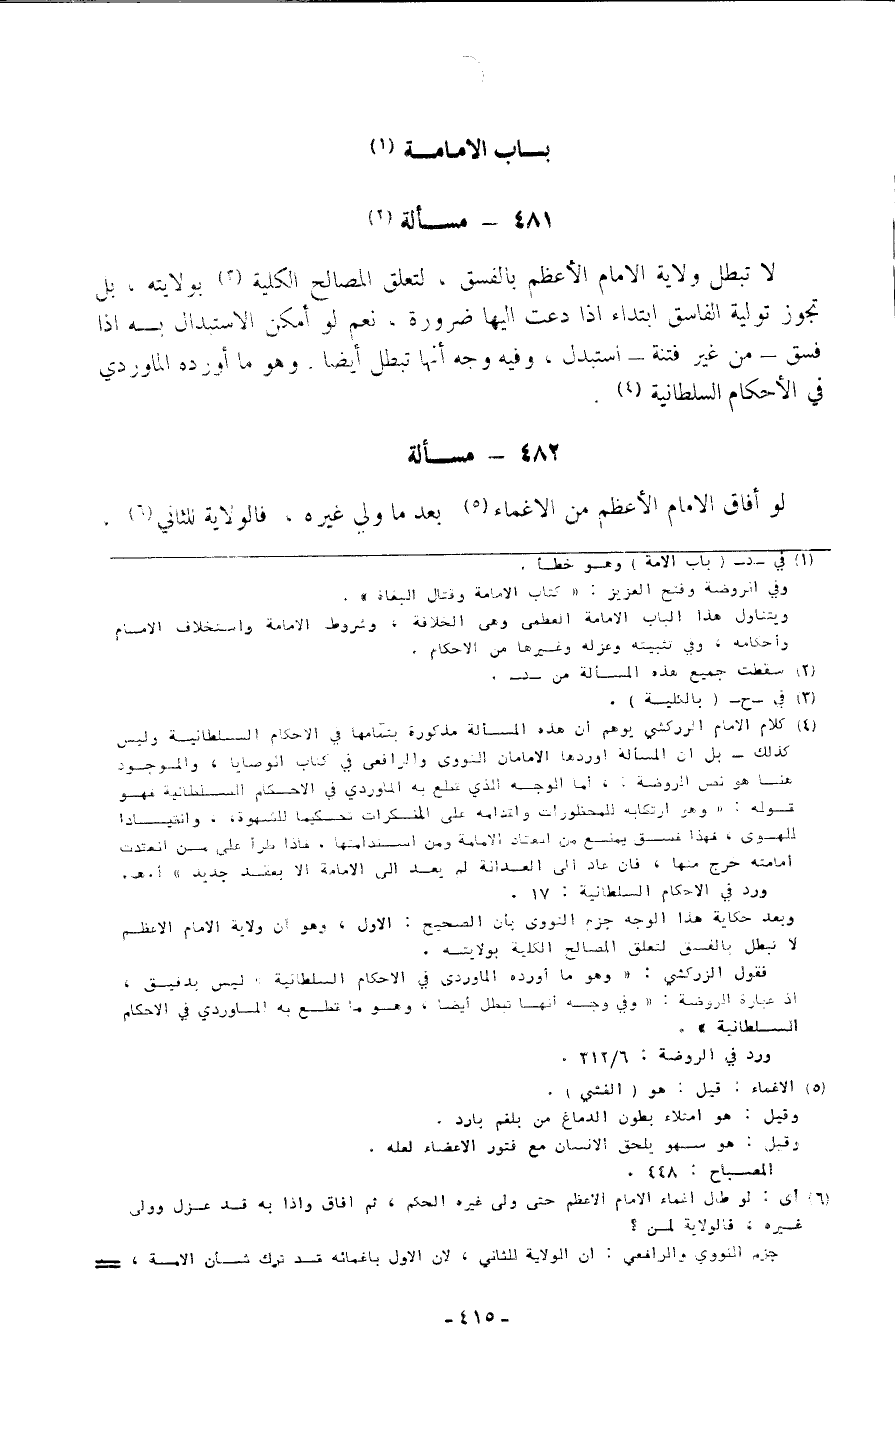 بـــاب الامامــة (١)
٤٨١ – مســألة (٢)
لا تبطل ولاية الامام الأعظم بالفسق ، لتعلق المصالح الكلية (٣) بولايته ، بل
تجوز تولية الفاسق ابتداء اذا دعت اليها ضرورة ، نعم لو أمكن الاستبدال بــه اذا
فسق – من غير فتنة – استبدل ، وفيه وجه أنها تبطل أيضا . وهو ما أورده الماوردي
في الأحكام السلطانية (٤) .
٤٨٢ – مســألة
لو أفاق الامام الأعظم من الاغماء (٥) بعد ما ولي غيره ، فالولاية للثاني (٦) .
(١) في –د– ( باب الامة ) وهــو خطــأ .
وفي الروضة وفتح العزيز : « كتاب الامامة وقتال البغاة » .
ويتناول هذا الباب الامامة العظمى وهى الخلافة ، وشروط الامامة واستخلاف الامــام
وأحكامه ، وفي تثبيته وعزله وغيرها من الاحكام .
(٢) سقطت جميع هذه المســألة من –د– .
(٣) في –ح– ( بالكليــة ) .
(٤) كلام الامام الزركشي يوهم أن هذه المســألة مذكورة بتمامها في الاحكام الســلطانيــة وليس
كذلك – بل ان المسألة اوردها الامامان النووى والرافعى في كتاب الوصايا ، والمــوجــود
هنــا هو نص الروضة : ، أما الوجــه الذي قطع به الماوردي في الاحــكام الســلطانية فهــو
قــوله : « وهو ارتكابه للمحظورات واقدامه على المنــكرات تحــكيما للشهوة، ، وانقيــادا
للهوى ، فهذا فســق يمنــع من انعقاد الامامة ومن اســتدامتها . فاذا طرأ على مــن انعقدت
امامته خرج منها ، فان عاد الى العــدالة لم يعــد الى الامامة الا بعقــد جديد » أ.هـ.
ورد في الاحكام السلطانية : ١٧ .
وبعد حكاية هذا الوجه جزم النووى بأن الصحيح : الاول ، وهو ان ولاية الامام الاعظــم
لا تبطل بالفسق لتعلق المصالح الكلية بولايتــه .
فقول الزركشي : « وهو ما أورده الماوردى في الاحكام السلطانية » ليس بدقيق ،
اذ عبارة الروضة : « وفي وجــه أنهــا تبطل أيضا ، وهــو ما قطــع به المــاوردي في الاحكام
الســلطانية » .
ورد في الروضة : ٣١٢/٦ .
(٥) الاغماء : قيل : هو ( الغشي ) .
وقيل : هو امتلاء بطون الدماغ من بلغم بارد .
وقيل : هو ســهو يلحق الانسان مع فتور الاعضاء لعله .
المصــباح : ٤٤٨ .
(٦) أى : لو طال اغماء الامام الاعظم حتى ولى غيره الحكم ، ثم افاق واذا به قــد عــزل وولى
غيــره ، فالولاية لمــن ؟
جزم النووي والرافعي : ان الولاية للثاني ، لان الاول باغمائه قــد ترك شــأن الامــة ، =
- ٤١٥ -